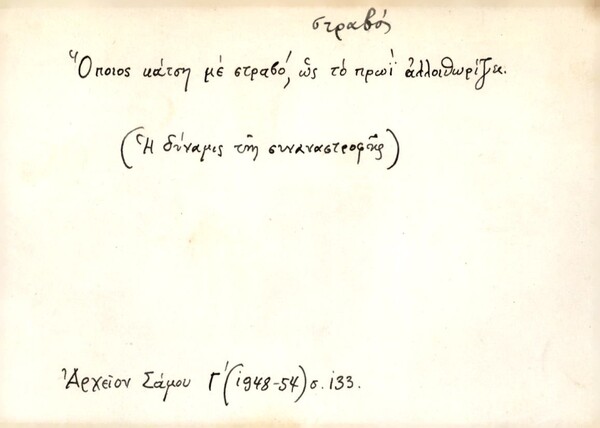 στραβός
Ὅποιος κάτση μέ στραβό, ὥς τό πρωΐ ἀλλοιθωρίζει.
(Ἡ δύναμις τῆς συναναστροφῆς)
Ἀρχεῖον Σάμου Γ' (1948-54) σ. 133.